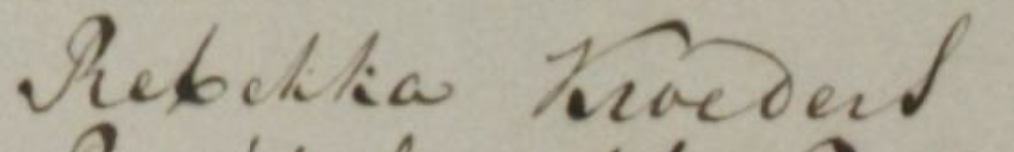 Rebekka Kroeders